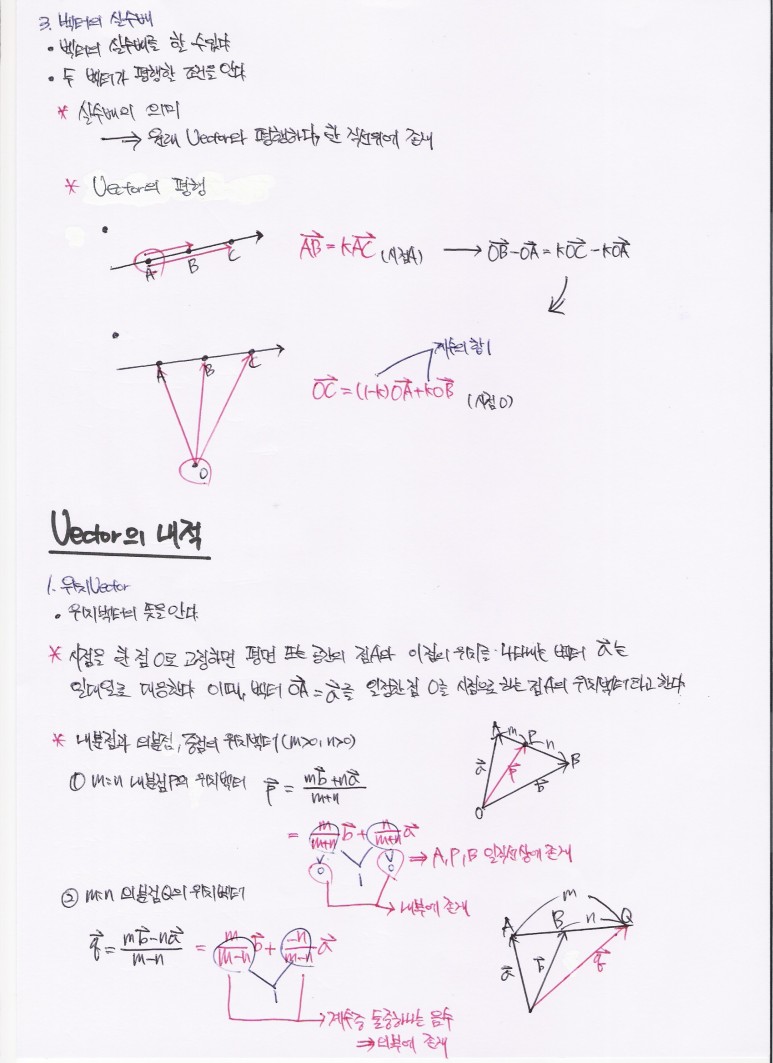 3. 벡터의 실수배
• 벡터의 실수배를 할 수있다
• 두 벡터가 평행할 조건을 안다
* 실수배의 의미
→ 원래 Vector와 평행하다, 한 직선위에 존재
* Vector의 평행
•
A B C
AB→ = kAC→ (시점A) → OB→ - OA→ = kOC→ - kOA→
•
A B C
O
계수의 합 1
OC→ = (1-k)OA→ + kOB→ (시점 O)
Vector의 내적
1. 위치Vector
• 위치벡터의 뜻을 안다
* 시점을 한 점 O로 고정하면 평면 또는 공간의 점A와 이점의 위치를 나타내는 벡터 a→는
일대일로 대응한다 이때, 벡터 OA→ = a→를 일정한 점 O를 시점으로 하는 점 A의 위치벡터라고 한다
* 내분점과 외분점, 중점의 위치벡터 (m>0, n>0)
① m:n 내분점P의 위치벡터 p→ = (mb→ + na→)/(m+n)
A m P n B
a→ p→ b→
O
= m/(m+n) b→ + n/(m+n) a→
V V
0 1 0
⇒ A, P, B 일직선상에 존재
→ 내부에 존재
② m:n 외분점Q의 위치벡터
q→ = (mb→ - na→)/(m-n) = m/(m-n) b→ + -n/(m-n) a→
1
m
A B n Q
a→ b→ q→
→ 계수중 둘중하나는 음수
⇒ 외부에 존재